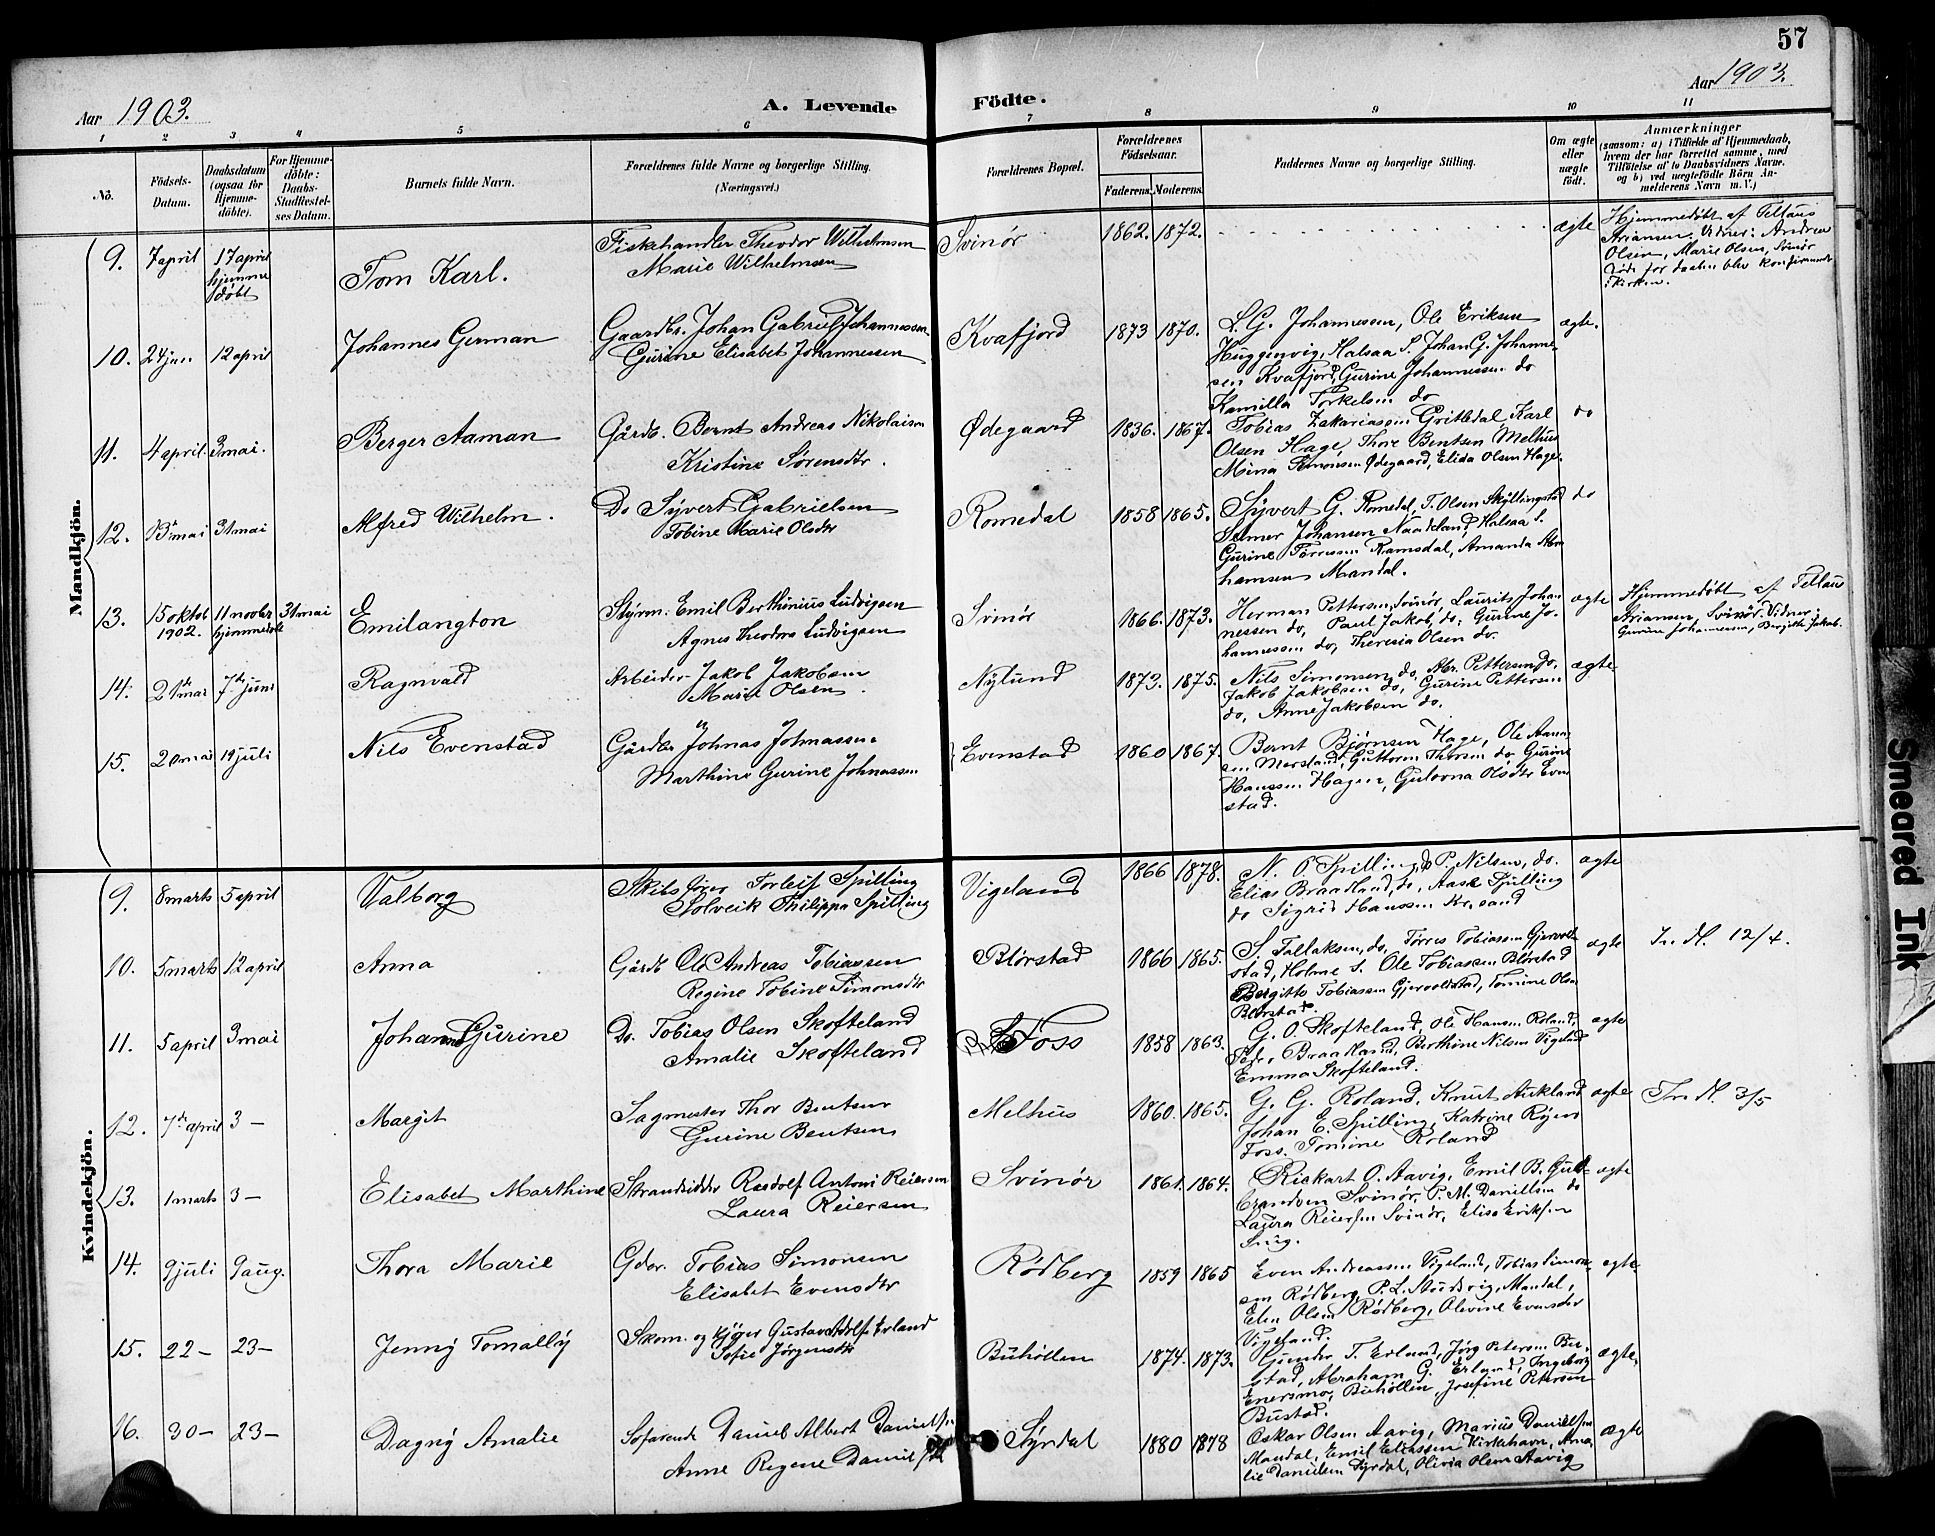 57
Aar 1903.
A. Levende Födte.
Aar 1903.
1 2 3 4 5 6 7 8 9 10 11
No.
Födsels-Datum.
Daabsdatum (ogsaa för Hjemme-döbte).
For Hjemme-döbte: Daabs-Stadfæstel-ses Datum.
Barnets fulde Navn.
Forældrenes fulde Navne og borgerlige Stilling. (Næringsvei.)
Forældrenes Bopæl.
Forældrenes Födselsaar.
Faderens. Moderens.
Faddernes Navne og borgerlige Stilling.
Om ægte eller uægte födt.
Anmærkninger
(saasom: a) i Tilfælde af Hjemmedaab, hvem der har forrettet samme, med Tilföielse af to Daabsvidners Navne, og b) ved uægtefödte Börn An-melderens Navn m. V.)
Mandkjön.
9. 7 april 17 april hjemme døbt Tom Karl. Fiskehandler Theodor Wilhelmsen Marie Wilhelmsen Svinør 1862. 1872. ægte Hjemmedøbt af Tellaus
Ariansen. Vidner: Andrea
Olsen, Marie Olsen, Svinør
10. 24 jan 12 april Johannes German Gaardbr. Johan Gabriel Johannessen Gurine Elisabet Johannessen Kvafjord 1873 1870. L. G. Johannessen, Ole Eriksen
Huggenvig, Halsaa S. Johan G. Johanne-
sen Kvafjord, Gurine Johannessen do
Kamilla Torkelsen do ægte.
11. 4 april. 3 mai. Berger Aaman Gårdb. Bernt Andreas Nikolaisen Kristine Sørensdtr. Ødegaard 1836. 1867. Tobias Zakariassen Gritledal, Karl
Olsen Hage, Thore Bentsen Melhus
Mina Simonsen Ødegaard, Elida Olsen Hage. do
12. 13 mai 31 mai Alfred Wilhelm. Do Syvert Gabrielsen Tobine Marie Olsdtr Romedal 1858 1865. Syvert G. Romedal, T. Olsen Skyllingstad
Selmer Johansen Naakland, Halsaa S.
Gurine Tørressen Ramsdal, Amanda Abra
hamsen Mandal. do
13. 15 oktob 1902. 11 novbr hjemmedøbt 31 mai Emilangton Styrm. Emil Berthinius Ludvigsen Agnes Theodora Ludvigsen Svinør 1866. 1873. Herman Pettersen, Svinør, Laurits Johan
nessen do, Paul Jakob, do, Gurine Jo-
hannessen do, Theresia Olsen do. ægte Hjemmedøbt af Tellaus
Ariansen, Svinør. Vidner:
Gurine Johannessen, Bergitte Jakob.
14. 21de mai 7de juni Ragnvald Arbeider Jakob Jakobsen Marie Olsen. Nylund 1873. 1875. Nils Simonsen, do, Abr. Pettersen do,
Jakob Jakobsen do, Gurine Pettersen
do, Anne Jakobsen do. ægte
15. 20 mai 19 juli Nils Evenstad Gårdbr Johnas Johnassen Marthine Gurine Johnassen Evenstad 1860 1867 Bernt Bjørnsen Hage, Ole Aanen
sen Mersland, Guttorm Thorsen do, Gurine
Hanssen Hagen, Gulovna Olsdtr Even
stad.
Kvindekjön.
9. 8 marts 5 april Valborg Skibsfører Torleif Spilling Solveik Philippa Spilling Vigeland 1866 1878. N. O. Spilling, do P. Nilsen, do.
Elias Braadland, do, Aase Spilling
do Sigrid Hanssen Kr.sand ægte
10. 5 marts 12 april Anna Gårdb Ole Andreas Tobiassen Regine Tobine Simonsdtr Blørstad 1866 1865. S. Tallaksen, do, Tørres Tobiassen Gjervold
stad, Holme S. Ole Tobiassen Blørstad
Bergitte Tobiassen Gjervoldstad, Tomine Olsen
Blørstad. ægte Tr. N. 12/4.
11. 5 april 3 mai Johanna Gurine Do. Tobias Olsen Skofteland Amalie Skofteland Foss 1858 1863. G. O. Skofteland, Ole Hansen Roland,
Peder Braadland, Berthine Nilsen Vigeland
Emma Skofteland. ægte
12. 7de april 3 – Margit Sagmester Thor Bentsen Gurine Bentsen Melhus 1860. 1865. G. G. Roland, Knut Aukland
Johan E. Spilling, Katrine Ryen
Foss. Tomine Roland ægte Tr. N. 3/5
13. 1 marts 3 – Elisabet Marthine Strandsidder Rudolf Antoni Reiersen Laura Reiersen Svinør 1861. 1864. Rickart O. Aavig, Emil B. Gul-
brandsen Svinør, P. M. Daniellsen do
Laura Reiersen Svinør, Elise Eriksen
Snig. ægte
14. 9 juli 9 aug. Thora Marie Gdbr. Tobias Simonsen Elisabet Evensdtr Rødberg 1859 1865 Even Andreassen Vigeland, Tobias Simon-
sen Rødberg, P. L. Mandal,
Elen Olsen Rødberg, Olevine Evensdtr
Vigeland. ægte
15. 22 – 23 – Jenny Tomally Skom. og Gustav Adolf Erland Sofie Jørgensdtr Buhøllen 1874. 1873. Gunder T. Erland, Jørg Petersen Bu-
stad, Abraham G. Erland, Ingeborg
Enersmo, Buhøllen, Josefine Petersen
Bustad. ægte.
16. 30 – 23 – Dagny Amalie Søfarende Daniel Albert Danielsen Anne Regine Danielsen Syrdal 1880 1878 Oskar Olsen Aavig, Marius Danielsen
Mandal, Emil Eliassen Kirkehavn, Ama
lie Danielsen Syrdal, Olivia Olsen Aavig ægte
Smeared Ink